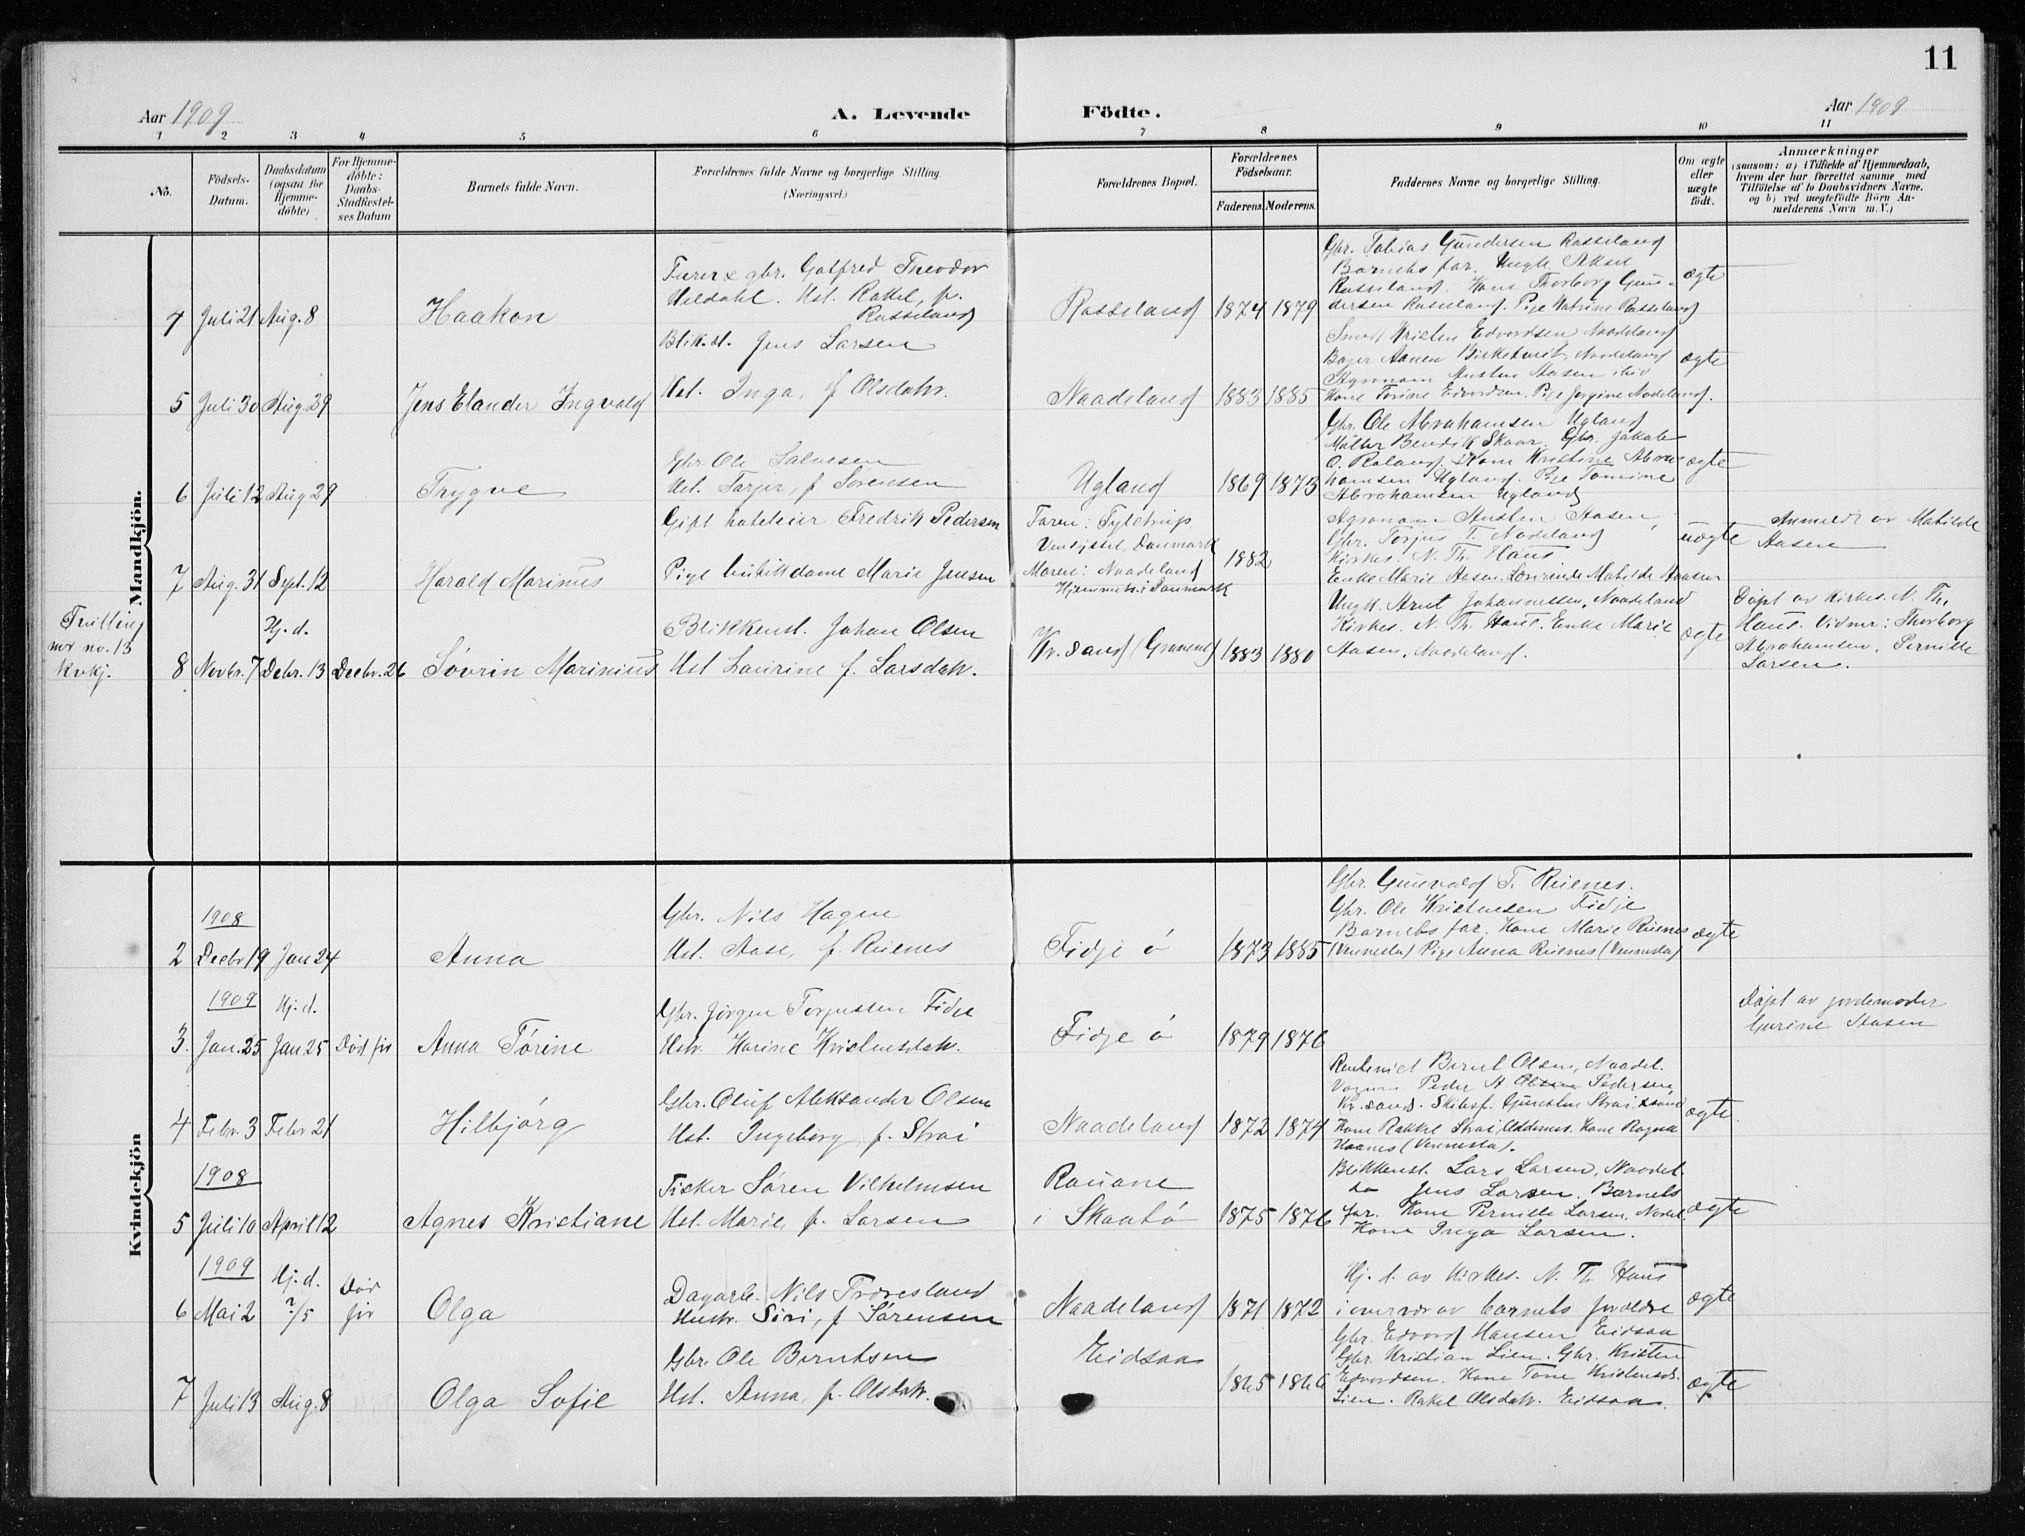 11
Aar 1909
A. Levende Födte.
Aar 1909
1 2 3 4 5 6 7 8 9 10 11
No.
Födsels-
Datum.
Daabsdatum
(ogsaa for
Hjemme-
döbte)
For Hjemme-
döbte:
Daabs-
Stadfæstel-
ses Datum
Barnets fulde Navn.
Forældrenes fulde Navne og borgerlige Stilling.
(Næringsvei.)
Forældrenes Bopæl.
Forældrenes
Födselsaar.
Faderens. Moderens.
Faddernes Navne og borgerlige Stilling.
Om ægte
eller
uægte
födt.
Anmærkninger
(saasom: a) i Tilfælde af Hjemmedaab,
hvem der har forrettet samme, med
Tilföielse af to Daabsvidners Navne,
og b) ved uægtefödte Börn An-
melderens Navn m. V.)
Mandkjön.
4 Juli 21 Aug. 8
Haakon
gbr. Gotfred Theodor
Ueldahl. Ust. Rakel, f.
Rosseland
Rosseland 1874 1879
Gbr. Tobias Gundersen Rosseland
Barnets far. Ungk. Aksel
Rosseland. Kone Thorborg Gun-
dersen Rosseland. Pige Katrine Rosseland
ægte
5 Juli 30 Aug. 29
Jens Elander Ingvald
Blik.sl. Jens Larsen
Ust. Inga, f. Olsdatr.
Naadeland 1883 1885
Smed Kristen Edvardsen Naadeland
Naadeland
Agronom Austen Aasen ibid
Kone Tørine Edvardsen. Pige Jørgine Nodeland.
ægte
6 Juli 12 Aug 29
Trygve
Gbr. Ole Salvesen
Ust. Torjer, f Sørensen
Ugland 1869 1873
Gbr. Ole Abrahamsen Ugland
Møller Bendik Skaar. Gbr. Jakob
O. Roland. Kone Kristine Abra-
hamsen Ugland. Pige Tomine
Abrahamsen Ugland
ægte
7 Aug. 31 Sept. 12
Harald Marinus
Gift hoteleier Fredrik Pedersen
Pige bufittdame Marie Jensen
Faren: Tylstrup
Vendsyssel, Danmark
Moren: Naadeland
Hjemmeh. i Danmark
1882
Agronom Austen Aasen,
Gbr. Torjus T. Nodeland
Kirkes. N. Th. Haus
Enke Marie Aasen. Lovrende Matilde Aasen
uægte
Anmeldt av Matilde
Aasen
Tvilling
mr no. 13
kvkj.
8 Novbr. 7 Debr. 13 Decbr. 26
Hj.d.
Søvrin Marinius
Blikkensl. Johan Olsen
Ust Laurine f. Larsdatr.
Kr.sand (Gravene) 1883 1880
Ungk. Arnt Johannessen, Naadeland
Kirkes. N. Th. Haus. Enke Marie
Aasen, Naadeland.
ægte
Døpt av Kirkes. N. Th.
Haus. Vidner: Thorborg
Abrahamsen, Pernille
Larsen.
Kvindekjön
1908
2 Decbr 19 Jan 24
Anna
Gbr. Nils Hagen
Ust. Aase, f. Reienes
Fidje ö 1873 1885
Gbr. Gunvald T. Reienes.
Gbr. Ole Kristensen Fidje
Barnets far. Kone Marie Reienes
(Vennesla) Pige Anna Reienes (Vennesla)
ægte
1909 Hj.d.
3. Jan. 25 Jan 25 Død før
Anna Tørine
Gbr. Jørgen Torjussen Fidje
Ustr. Karine Kristensdatr.
Fidje ö 1879 1876
Døpt av jordemoder
Gurine Aasen
4 Febr. 3 Febr 21
Hilbjørg
Gbr. Oluf Aleksander Olsen
Ust. Ingeborg, f. Strai
Naadeland 1872 1874
Bernt Olsen, Naadel.
Peder A Olsen Pedersen,
Kr.sand. Skibsf. Gunsten Strai
Kone Rakkel Strai Oddernes. Kone Ragna
Haanes (Vennesla).
ægte.
1908
5 Juli 10 April 12
Agnes Kristiane
Fisker Søren Vilhelmsen
Ust. Marie, f. Larsen
Rauane
i Skaatö 1875 1876
Blikkensl. Lars Larsen, Naadel.
do Jens Larsen. Barnets
far. Kone Pernille Larsen, Nodel.
Kone Inga Larsen.
ægte
1909 Hj.d. Død
6 Mai 2 7/5 før
Olga
Dagarb. Nils Traresland
Hustr. Siri, f Sørensen
Naadeland 1871 1872
Hj. d. av Kirkes. N. Th. Haus
i overvær av barnets forældre
ægte
7 Juli 13 Aug. 8
Olga Sofie
Gbr. Ole Berntsen
Ust. Anna, f. Olsdatr.
Eidsaa 1865 1866
Gbr. Edvard Hansen Eidsaa
Gbr. Kristian Lien. Gbr. Kristen
Edvardsen. Kone Tone Kristensd.
Lien. Rakel Olsdatr. Eidsaa.
ægte